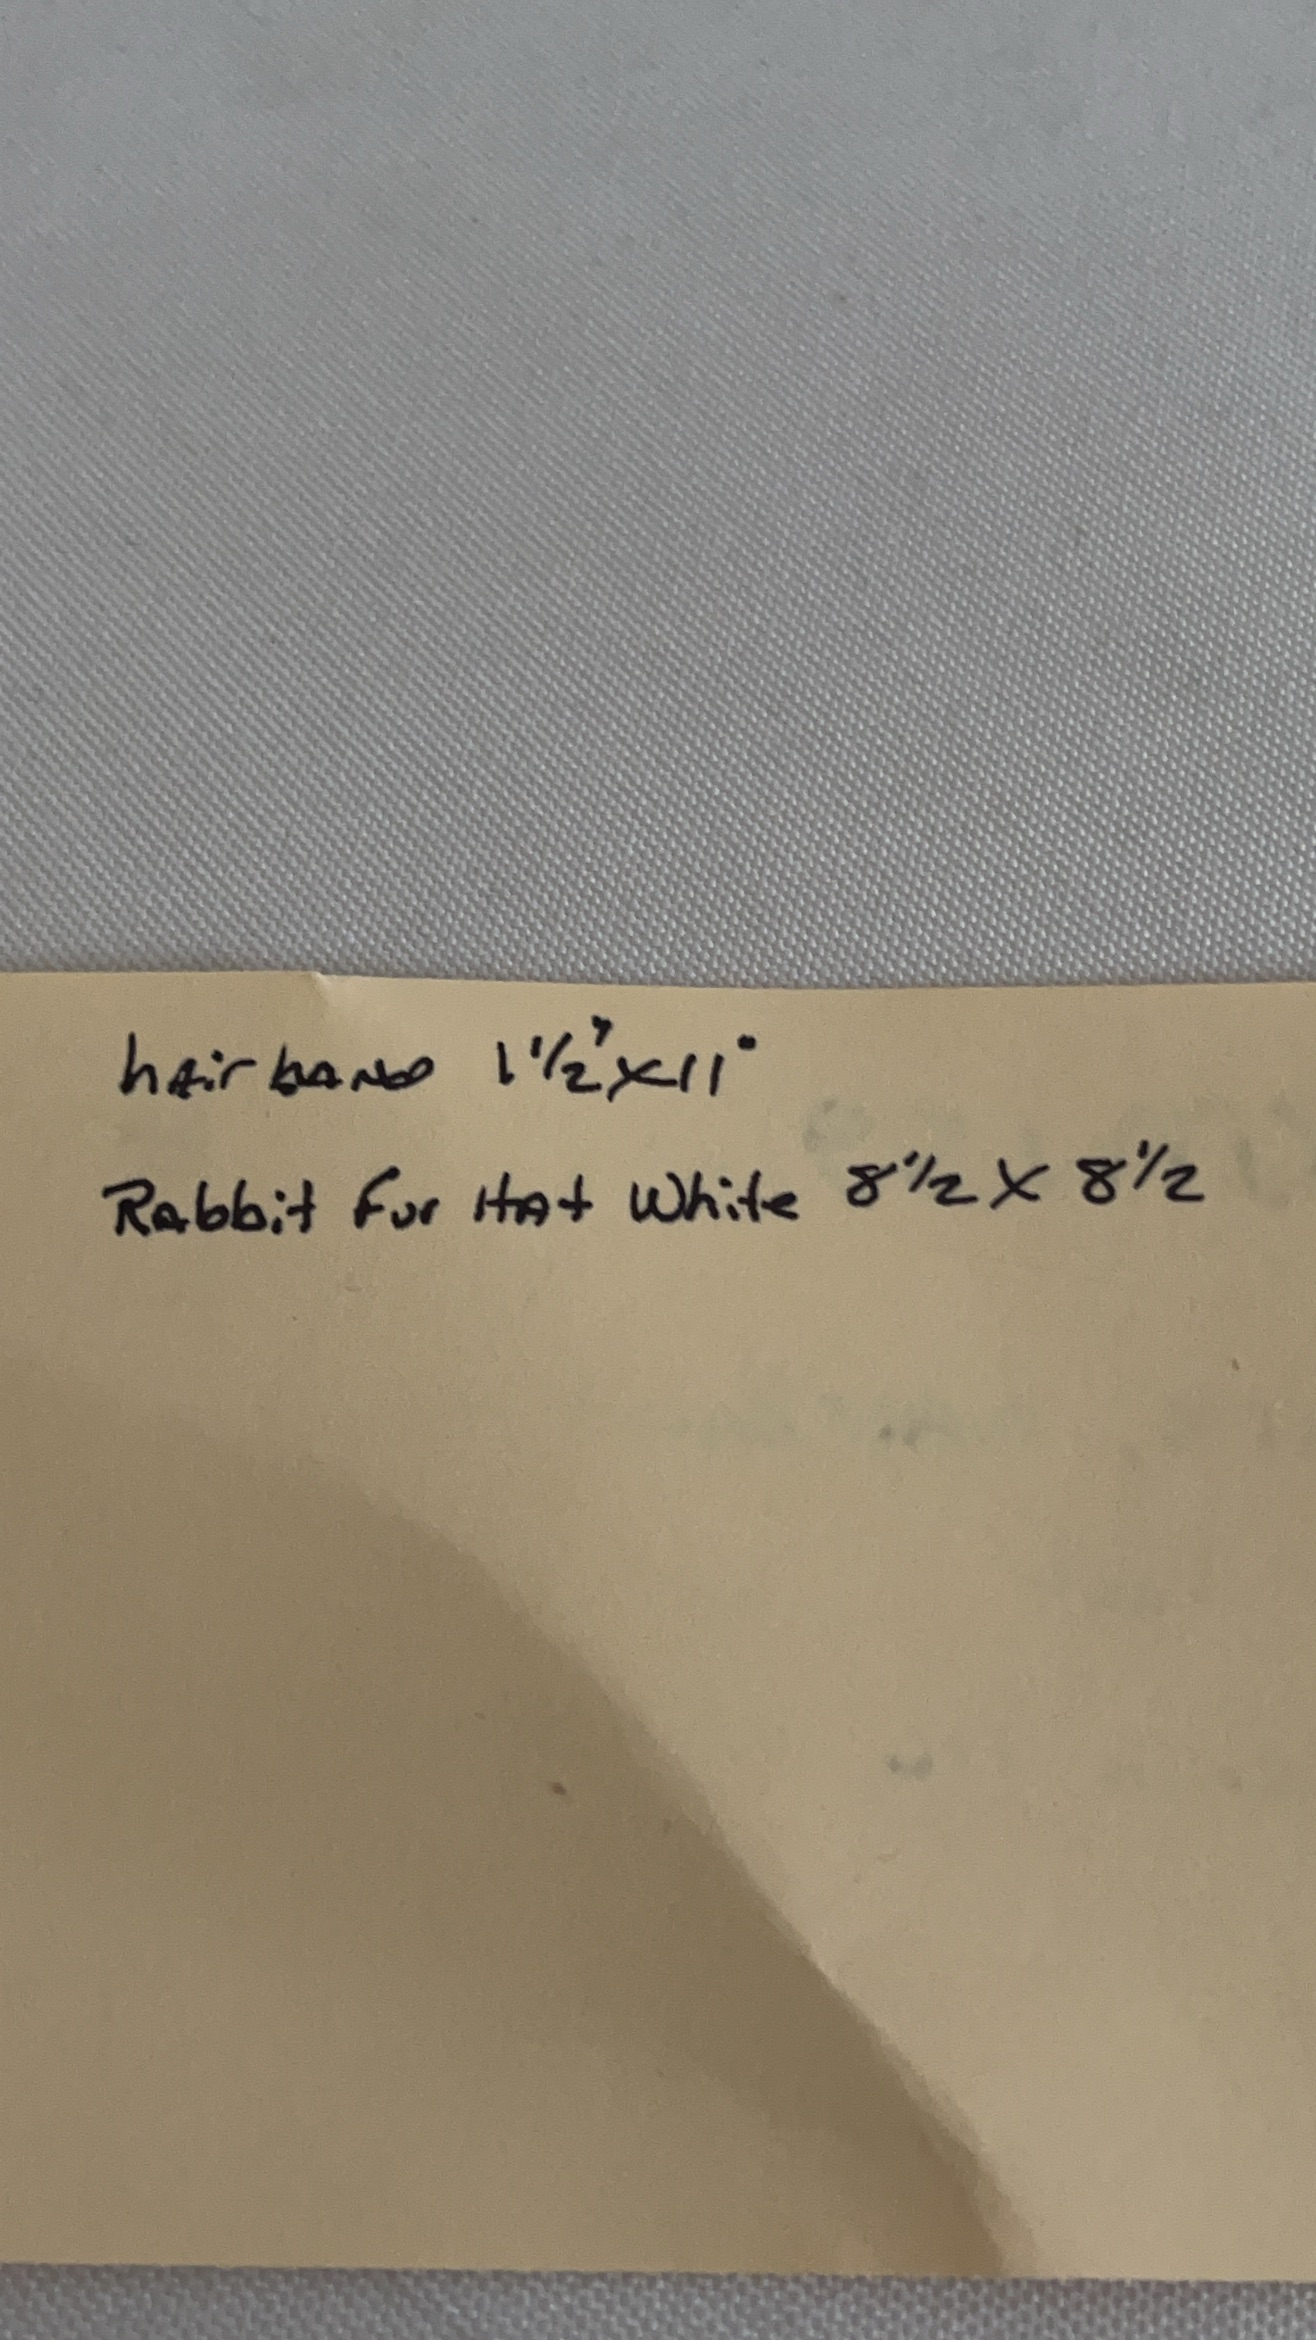 hairband 1 1/2" x 11"
Rabbit Fur Hat White 8 1/2 X 8 1/2